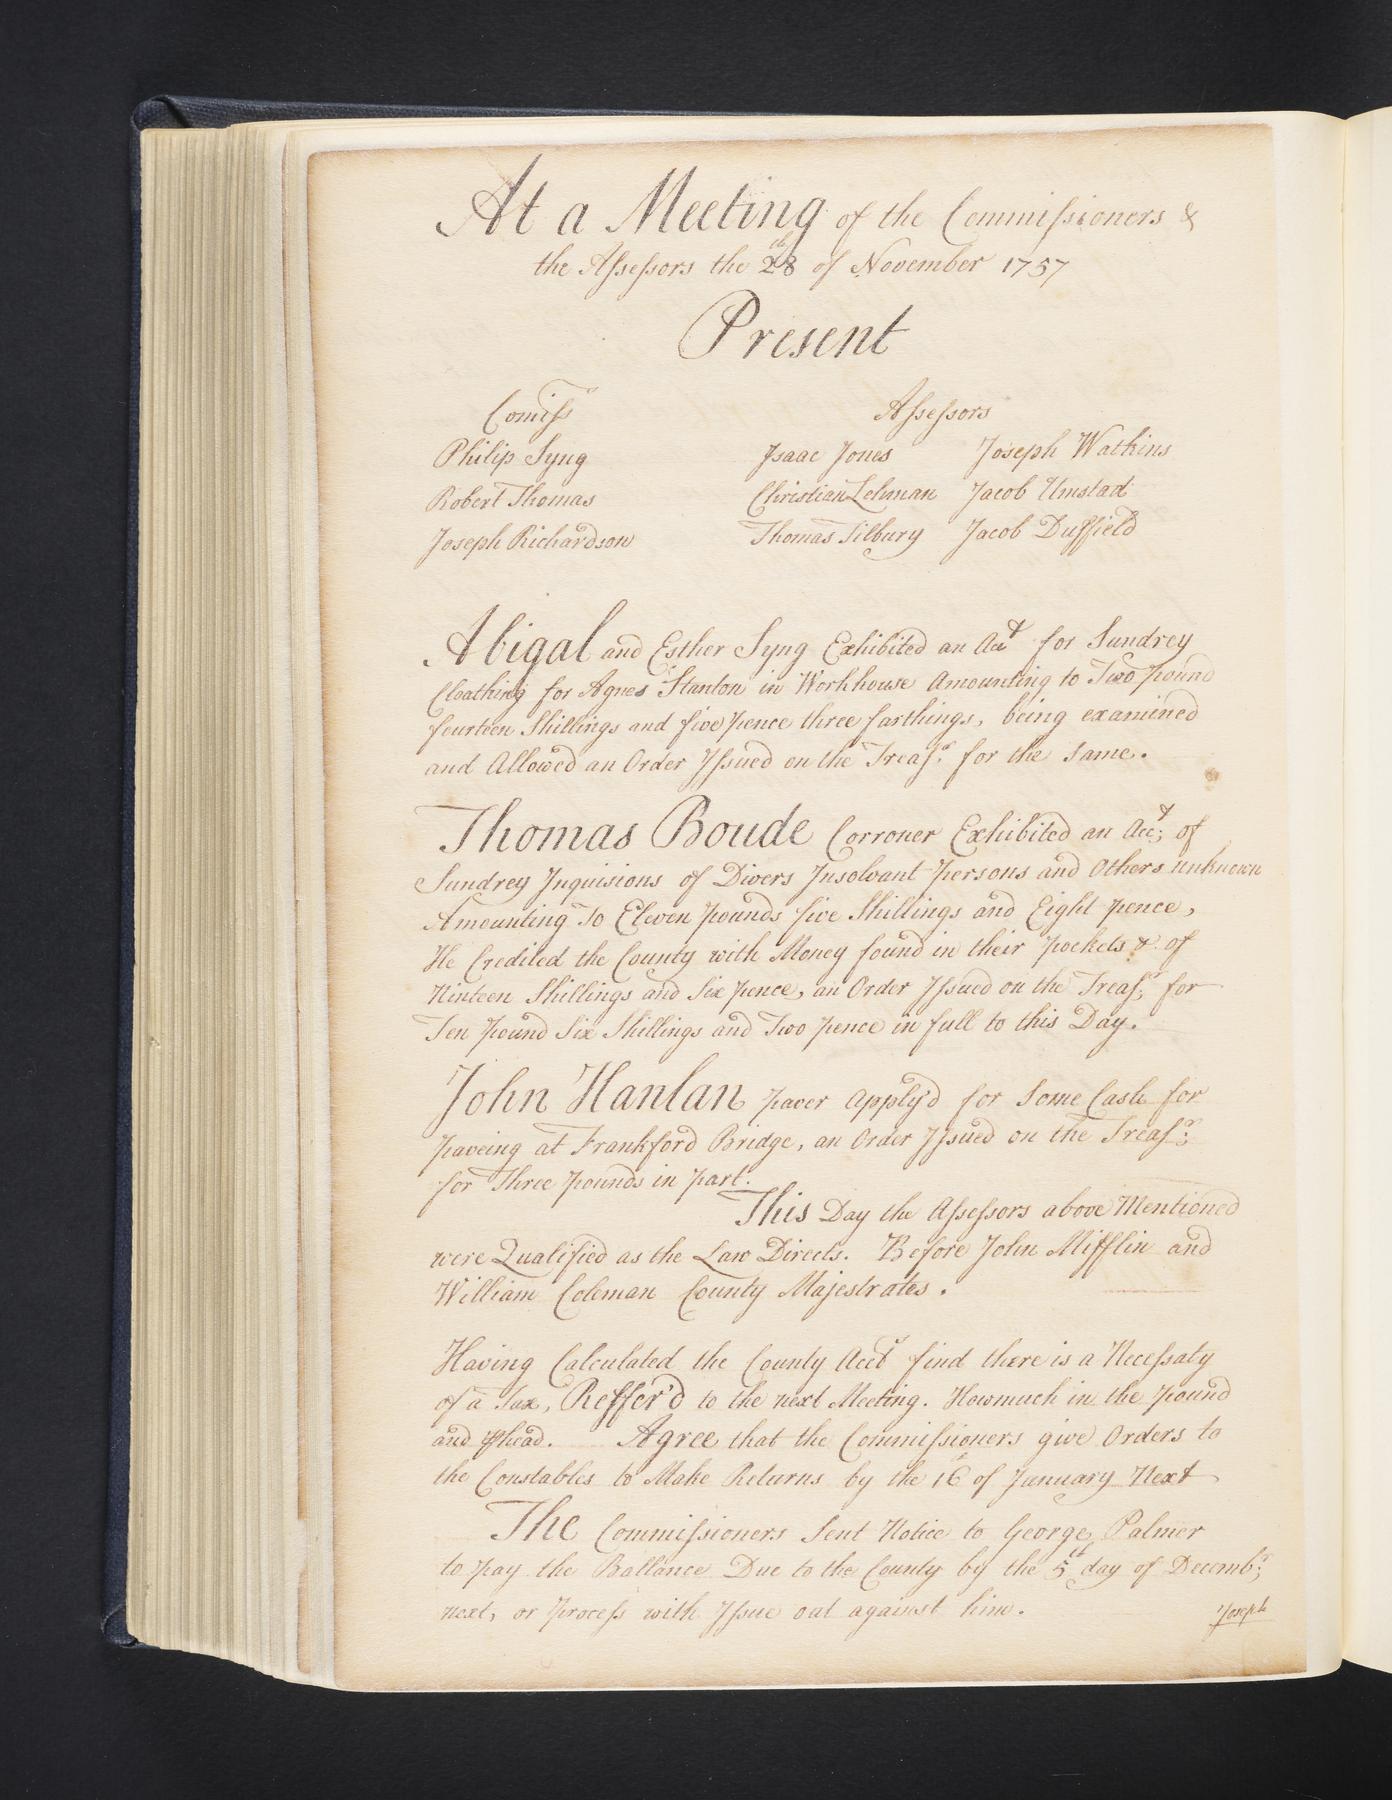 At a Meeting of the Commissioners &
the Assessors the 28th of November 1757
Present
Comiss rs
Assessors
Philip Syng
Isaac Jones Joseph Watkins
Robert Thomas
Christian Lehman Jacob Umstad
Joseph Richardson
Thomas Tilbury Jacob Duffield
Abigal and Esther Syng Exhibited an Acct for Sundrey
Cloathing for Agnes Stanton in Workhouse Amounting to Two pound
fourteen Shillings and five pence three farthings, being examined
and Allowed an Order Issued on the Treasr. for the Same.
Thomas Boude Corroner Exhibited an Acct; of
Sundrey Inquisions of Divers Insolvant persons and Others unknown
Amounting To Eleven pounds five Shillings and Eight pence,
He Credited the County with Money found in their pockets &. of
Ninteen Shillings and Six pence, an Order Issued on the Treasr; for
Ten pound Six Shillings and Two pence in full to this Day.
John Hanlan paver Apply'd for Some Cash for
paveing at Frankford Bridge, an Order Issued on the Treasr;
for Three pounds in part.
This Day the Assessors above Mentioned
were Qualified as the Law Directs. Before John Mifflin and
William Coleman County Majestrates.
Having Calculated the County Accts find there is a Necessaty
of a Tax, Reffer'd to the next Meeting. Howmuch in the pound
and ⅌ head. Agree that the Commissioners give Orders to
the Constables to Make Returns by the 16 of January Next
The Commissioners Sent Notice to George Palmer
to pay the Ballance Due to the County by the 5th day of Decembr;
next, or process with Issue out against him.
Joseph